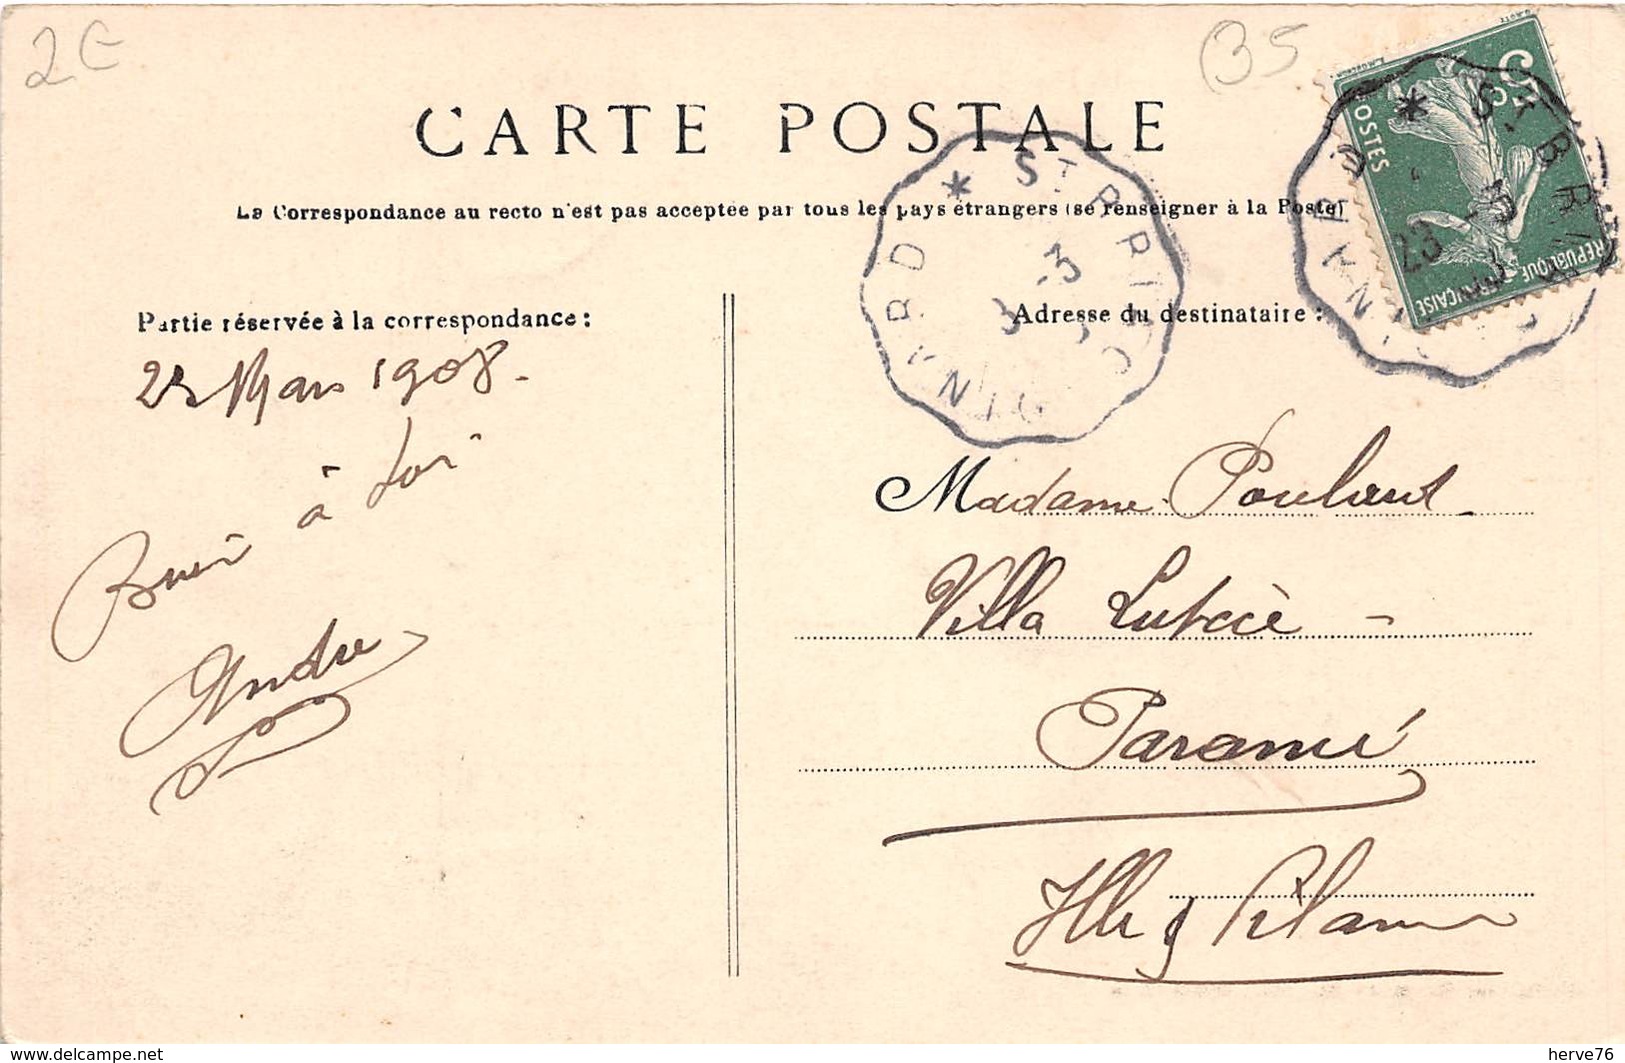 2€
35
CARTE POSTALE
La Correspondance au recto n'est pas acceptée par tous les pays étrangers (se renseigner à la Poste)
Partie réservée à la correspondance :
Adresse du destinataire :
23 Mars 1908.
à toi
André
Madame
Villa Lutèce
Paramé
Ille & Vilaine
DINARD * ST BRIEUC
23 -3
DINARD * ST BRIEUC
-3
5c
POSTES
REPUBLIQUE FRANÇAISE
www.delcampe.net
herve76